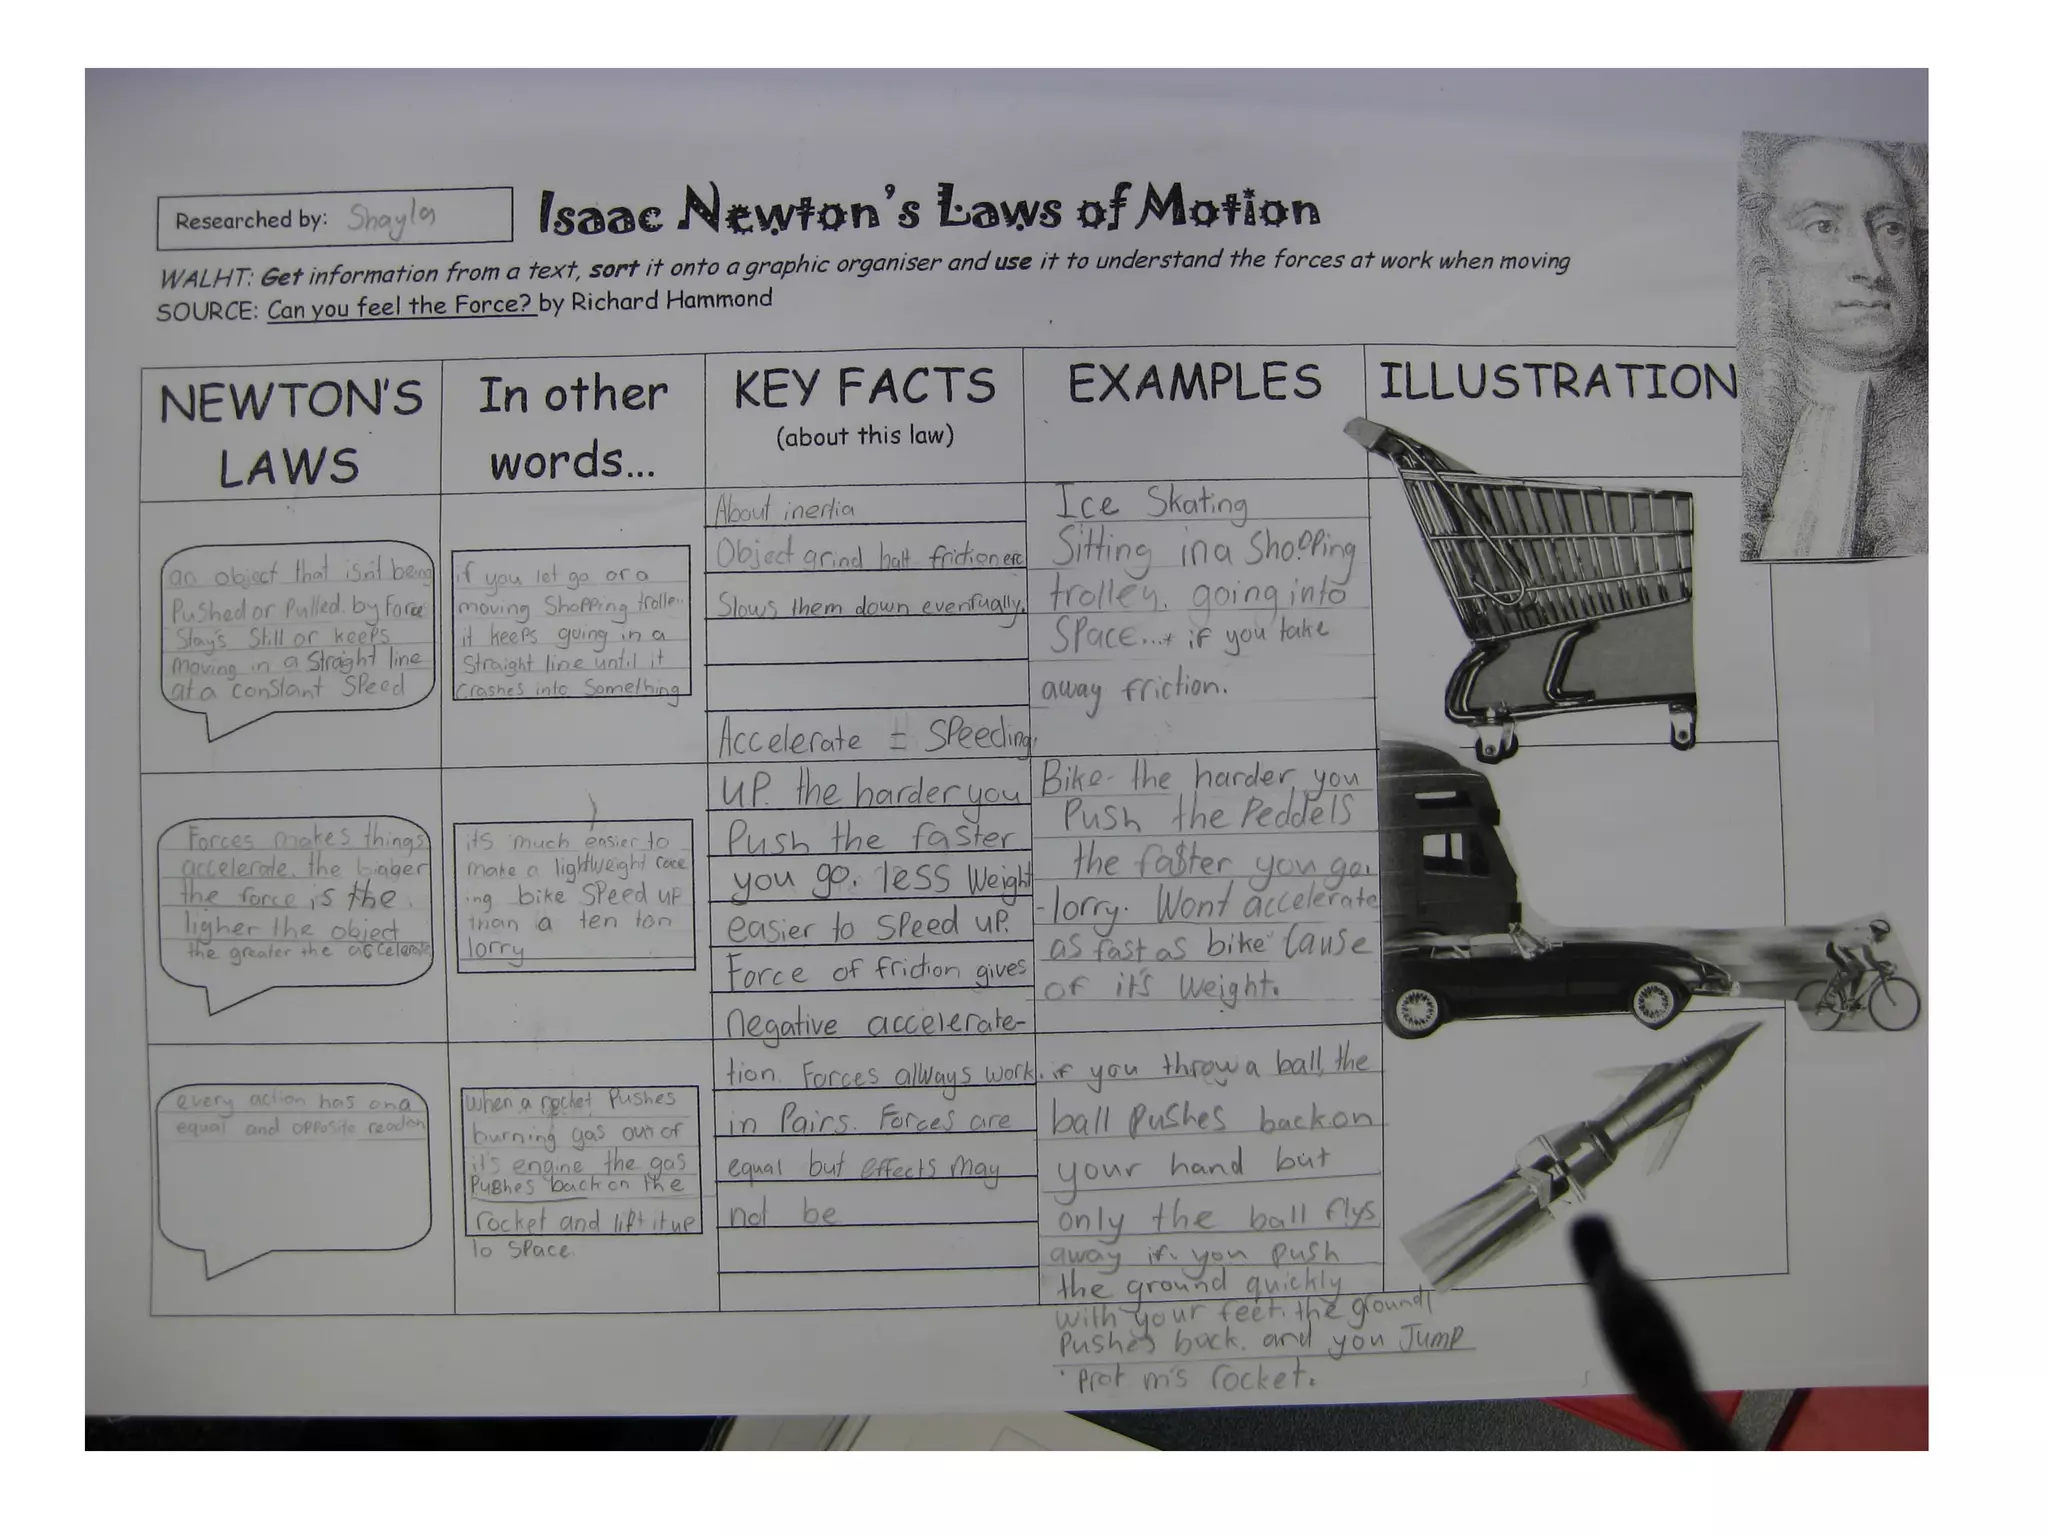 Researched by: Shayla
Isaac Newton's Laws of Motion
WALHT: Get information from a text, sort it onto a graphic organiser and use it to understand the forces at work when moving
SOURCE: Can you feel the Force? by Richard Hammond
NEWTON'S
LAWS
In other
words...
KEY FACTS
(about this law)
EXAMPLES
ILLUSTRATION
an object that isn't being
Pushed or Pulled. by Force
Stay's Still or keeps
moving in a Straight line
at a constant Speed
if you let go of a
moving Shopping trolle..
it keeps going in a
Straight line until it
crashes into Something
About inertia
Object grind halt friction etc
Slows them down eventually.
Ice Skating
Sitting in a Shopping
trolley. going into
Space...+ if you take
away friction.
Forces makes things
accelerate. the bigger
the force is the
ligher the object
the greater the accelerate
its much easier to
make a lightweight race
ing bike Speed up
than a ten ton
lorry
Accelerate = Speeding
up. the harder you
Push the faster
you go. less weight
easier to Speed up.
Force of friction gives
negative accelerate-
tion. Forces always work
in Pairs. Forces are
equal but effects may
not be
Bike- the harder you
Push the Peddels
the faster you go.
- lorry. Wont accelerate
as fast as bike cause
of it's weight.
every action has and
equal and opposite reaction
when a rocket Pushes
burning gas out of
it's engine the gas
Pushes back on the
rocket and lift it up
to Space
if you throw a ball, the
ball pushes back on
your hand but
only the ball flys
away if you push
the ground quickly
with your feet. the ground
Pushes back. and you Jump
rocket.